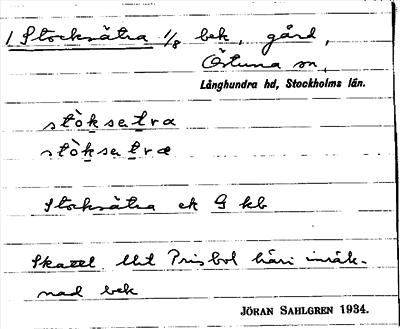 1 Stocksätra 1/8 bek, gård,
Östuna sn,
Långhundra hd, Stockholms län.
stòksetra
stòksetræ
Stocksätra ek G kb
Skattel litt Prisbol häri inräk-
nad bek
JÖRAN SAHLGREN 1934.